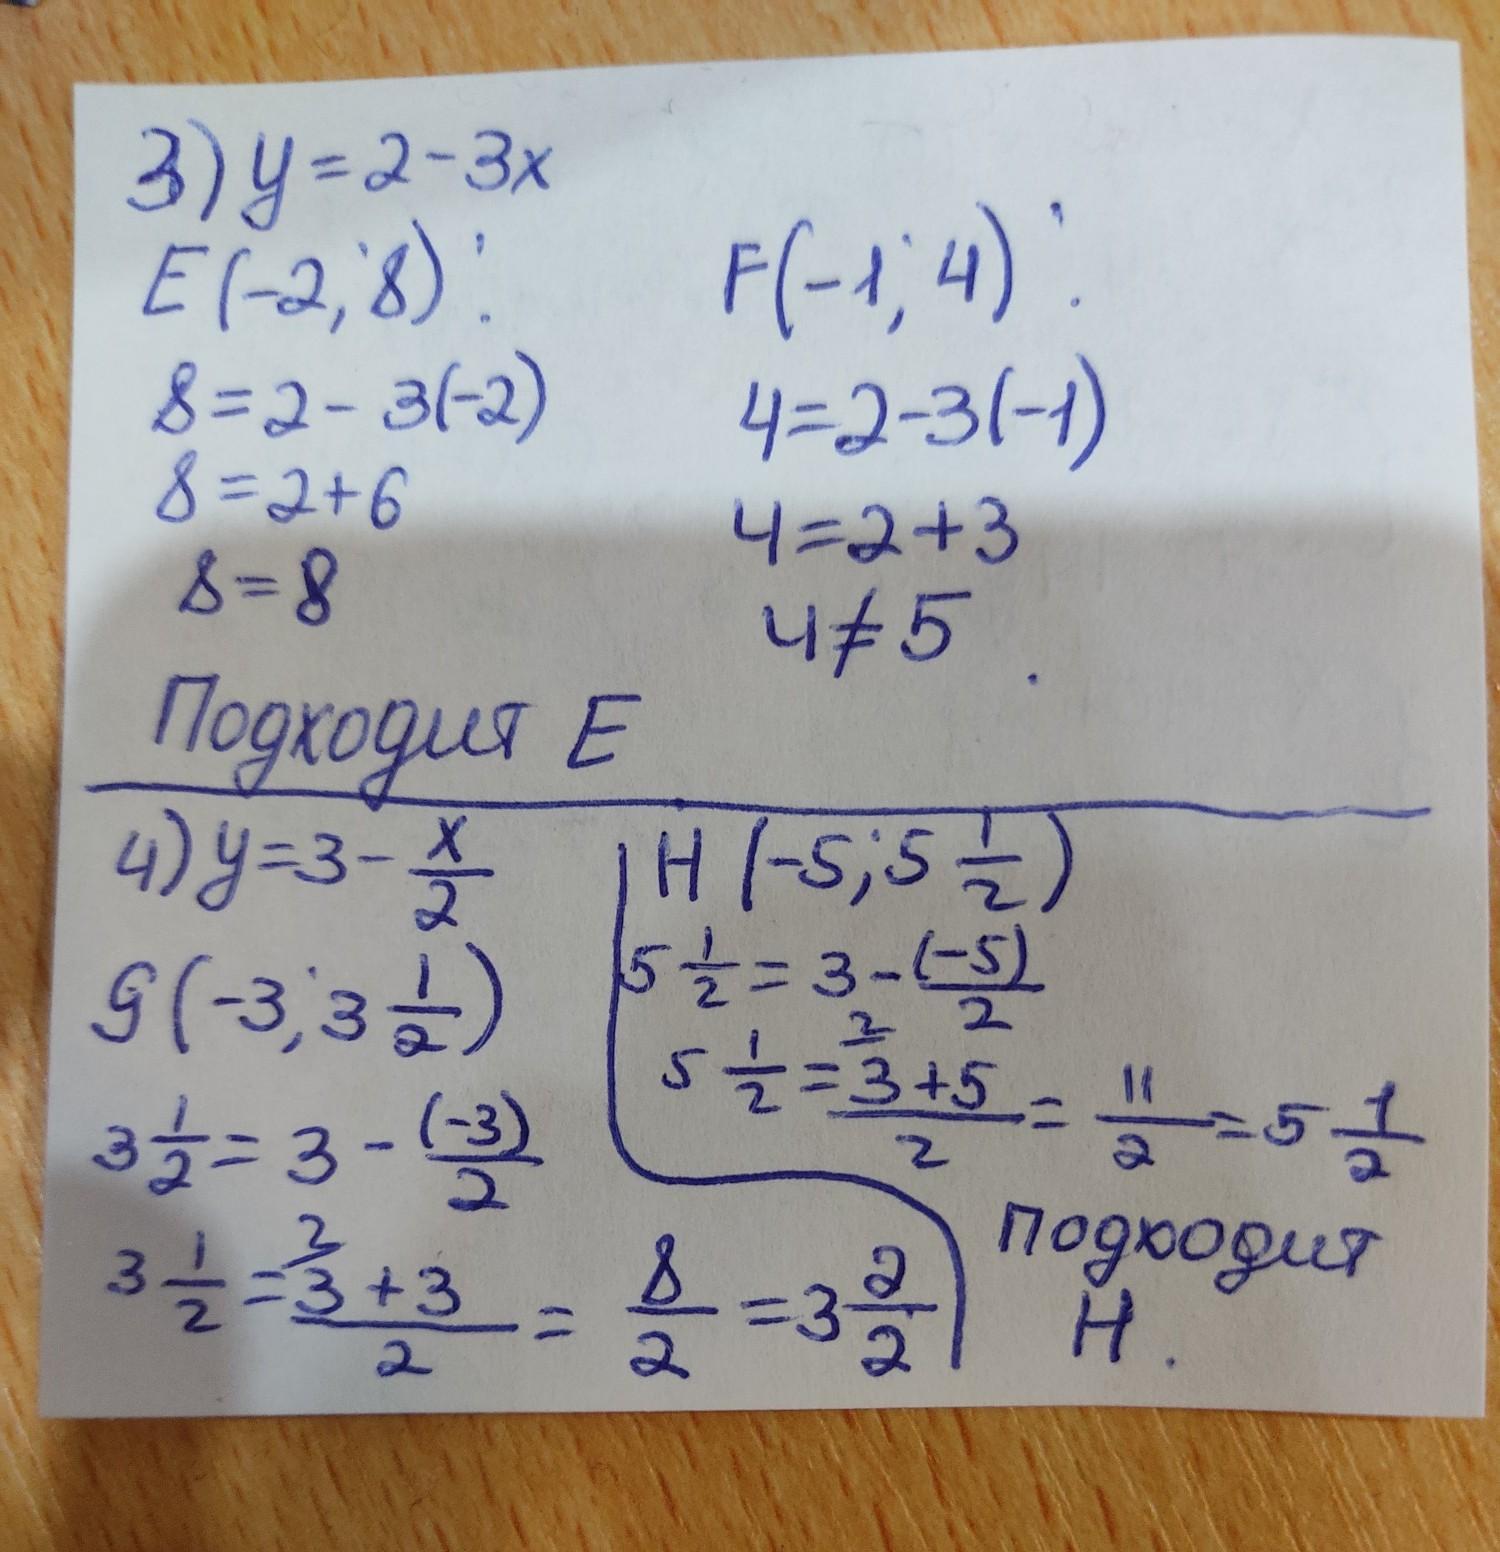 3) y = 2 - 3x
E(-2; 8):
8 = 2 - 3(-2)
8 = 2 + 6
8 = 8
F(-1; 4):
4 = 2 - 3(-1)
4 = 2 + 3
4 ≠ 5
Подходит E
4) y = 3 - x/2
G(-3; 3 1/2)
3 1/2 = 3 - (-3)/2
3 1/2 = (²3 + 3)/2 = 8/2 = 3 2/2
H(-5; 5 1/2)
5 1/2 = 3 - (-5)/2
5 1/2 = (²3 + 5)/2 = 11/2 = 5 1/2
подходит
H.